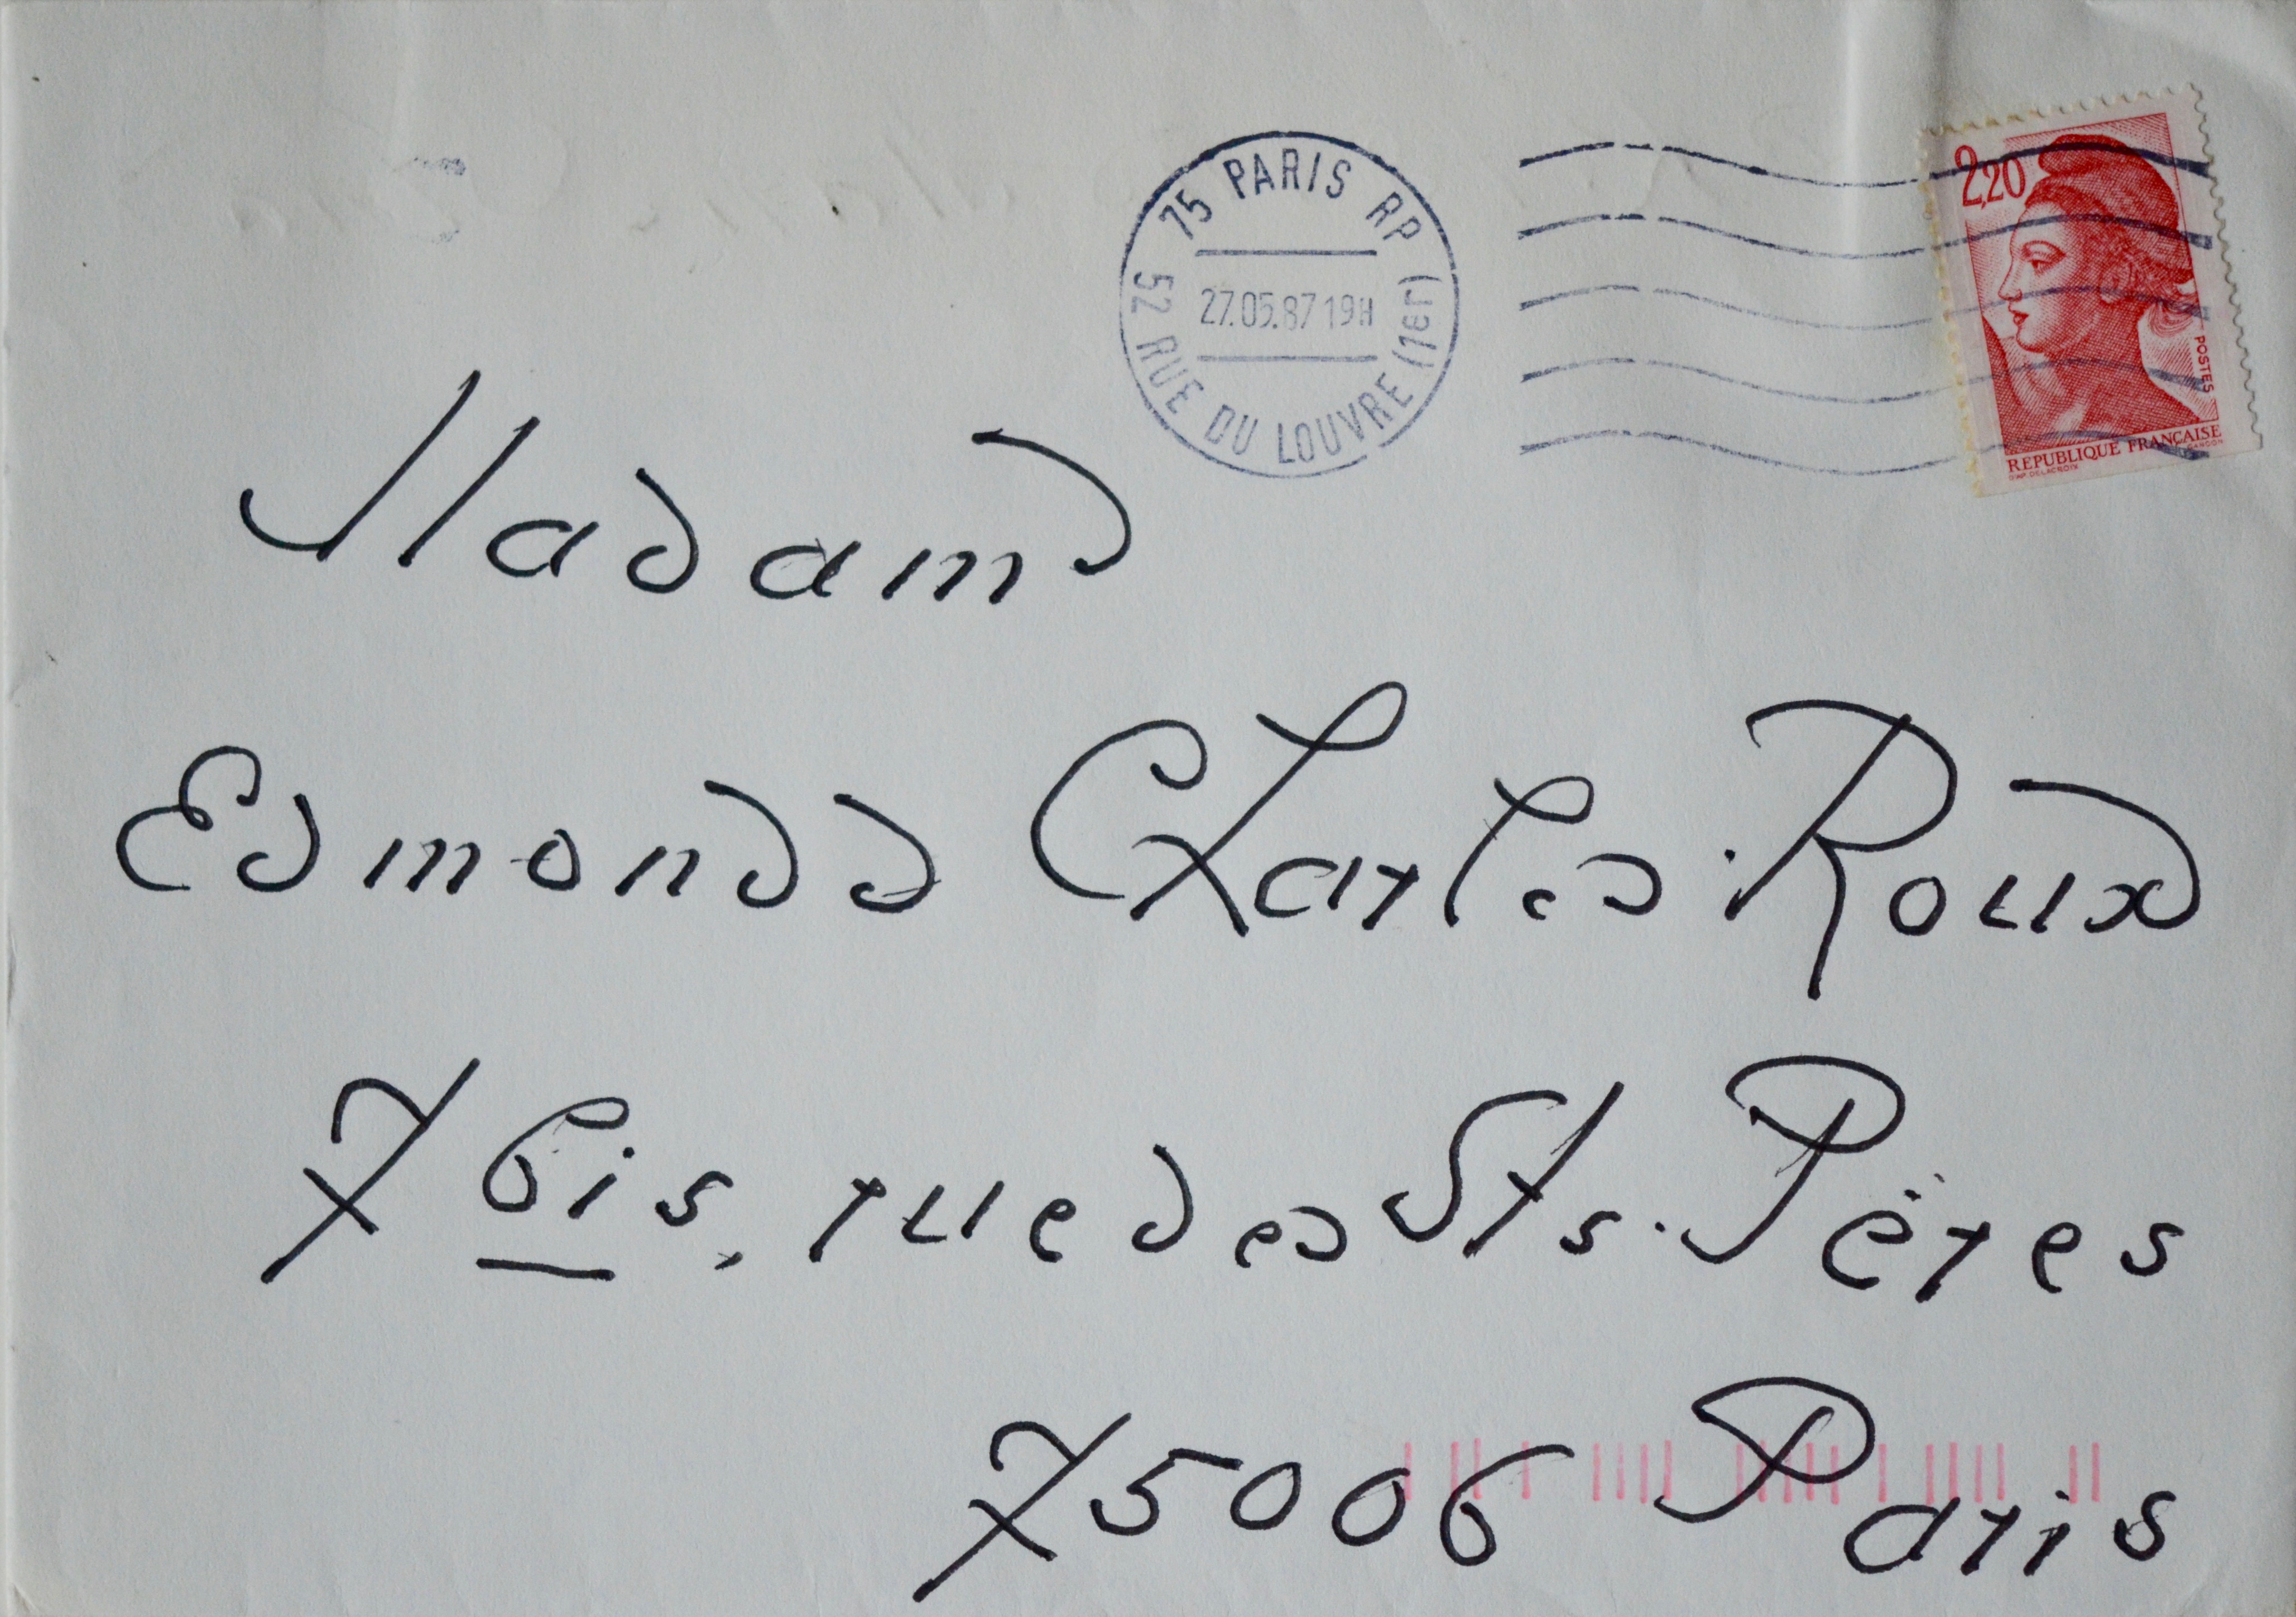 75 PARIS RP
27.05.87 19H
52 RUE DU LOUVRE (1er)
2,20
POSTES
REPUBLIQUE FRANÇAISE
D'AP. DELACROIX
GANDON
Madame
Edmonde Charles-Roux
7 bis, rue des Sts-Përes
75006 Paris